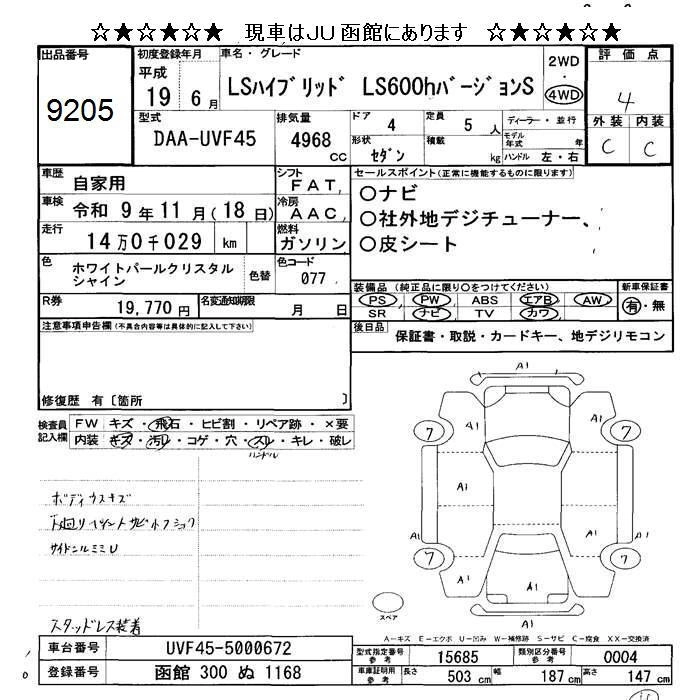 ☆★☆★☆★ 現車はJU函館にあります ☆★☆★☆★
出品番号
9205
初度登録年月
平成
19 6月
車名・グレード
LSハイブリッド LS600hバージョンS
2WD
・
4WD
評価点
4
外装 内装
C C
型式
DAA-UVF45
排気量
4968
cc
ドア 4
定員 5 人
ディーラー・並行
形状 セダン
積載 kg
モデル年式 年
ハンドル 左・右
車歴 自家用
シフト FAT
車検 令和 9年11月(18日)
冷房 AAC
走行 14万0千029 km
燃料 ガソリン
色 ホワイトパールクリスタル
シャイン
色替
色コード 077
R券 19,770円
名変通知期限 月 日
セールスポイント(正常に機能するものに限ります)
○ナビ
○社外地デジチューナー、
○皮シート
装備品 (純正品に限り○をつけてください)
PS PW ABS エアB AW
SR ナビ TV カワ
新車保証書
有・無
後日品 保証書・取説・カードキー、地デジリモコン
注意事項申告欄(不具合内容等は具体的に記入して下さい)
修復歴 有〔箇所 〕
検査員
記入欄
FW キズ・飛石・ヒビ割・リペア跡・×要
内装 キズ・汚レ・コゲ・穴・スレ・キレ・破レ
ハンドル
ボディウスキズ
スタッドレス装着
A1
A1
A1
7
7
A1
A1
A1
7
7
A1
A1
A1
スペア
A-キズ E-エクボ U-凹み W-補修跡 S-サビ C-腐食 XX-交換済
車台番号 UVF45-5000672
登録番号 函館 300 ぬ 1168
型式指定番号
参考
15685
類別区分番号
参考
0004
車庫証明用
参考
長さ 503 cm
幅 187 cm
高さ 147 cm